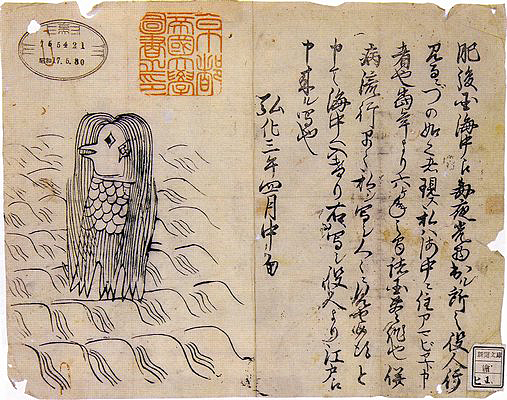 肥後国海中え毎夜光物出ル所之役人行
見るニづの如之者現ス私ハ海中ニ住アマビヱト申
者也当年より六ヶ年之間諸国豊作也併
病流行早々私ヲ写シ人々ニ見セ候得と
申て海中へ入けり右写シ役人より江戸え
申来ル写也
弘化三年四月中旬
京都
帝國大學
圖書之印
165421
昭和17.5.30
新聞文庫